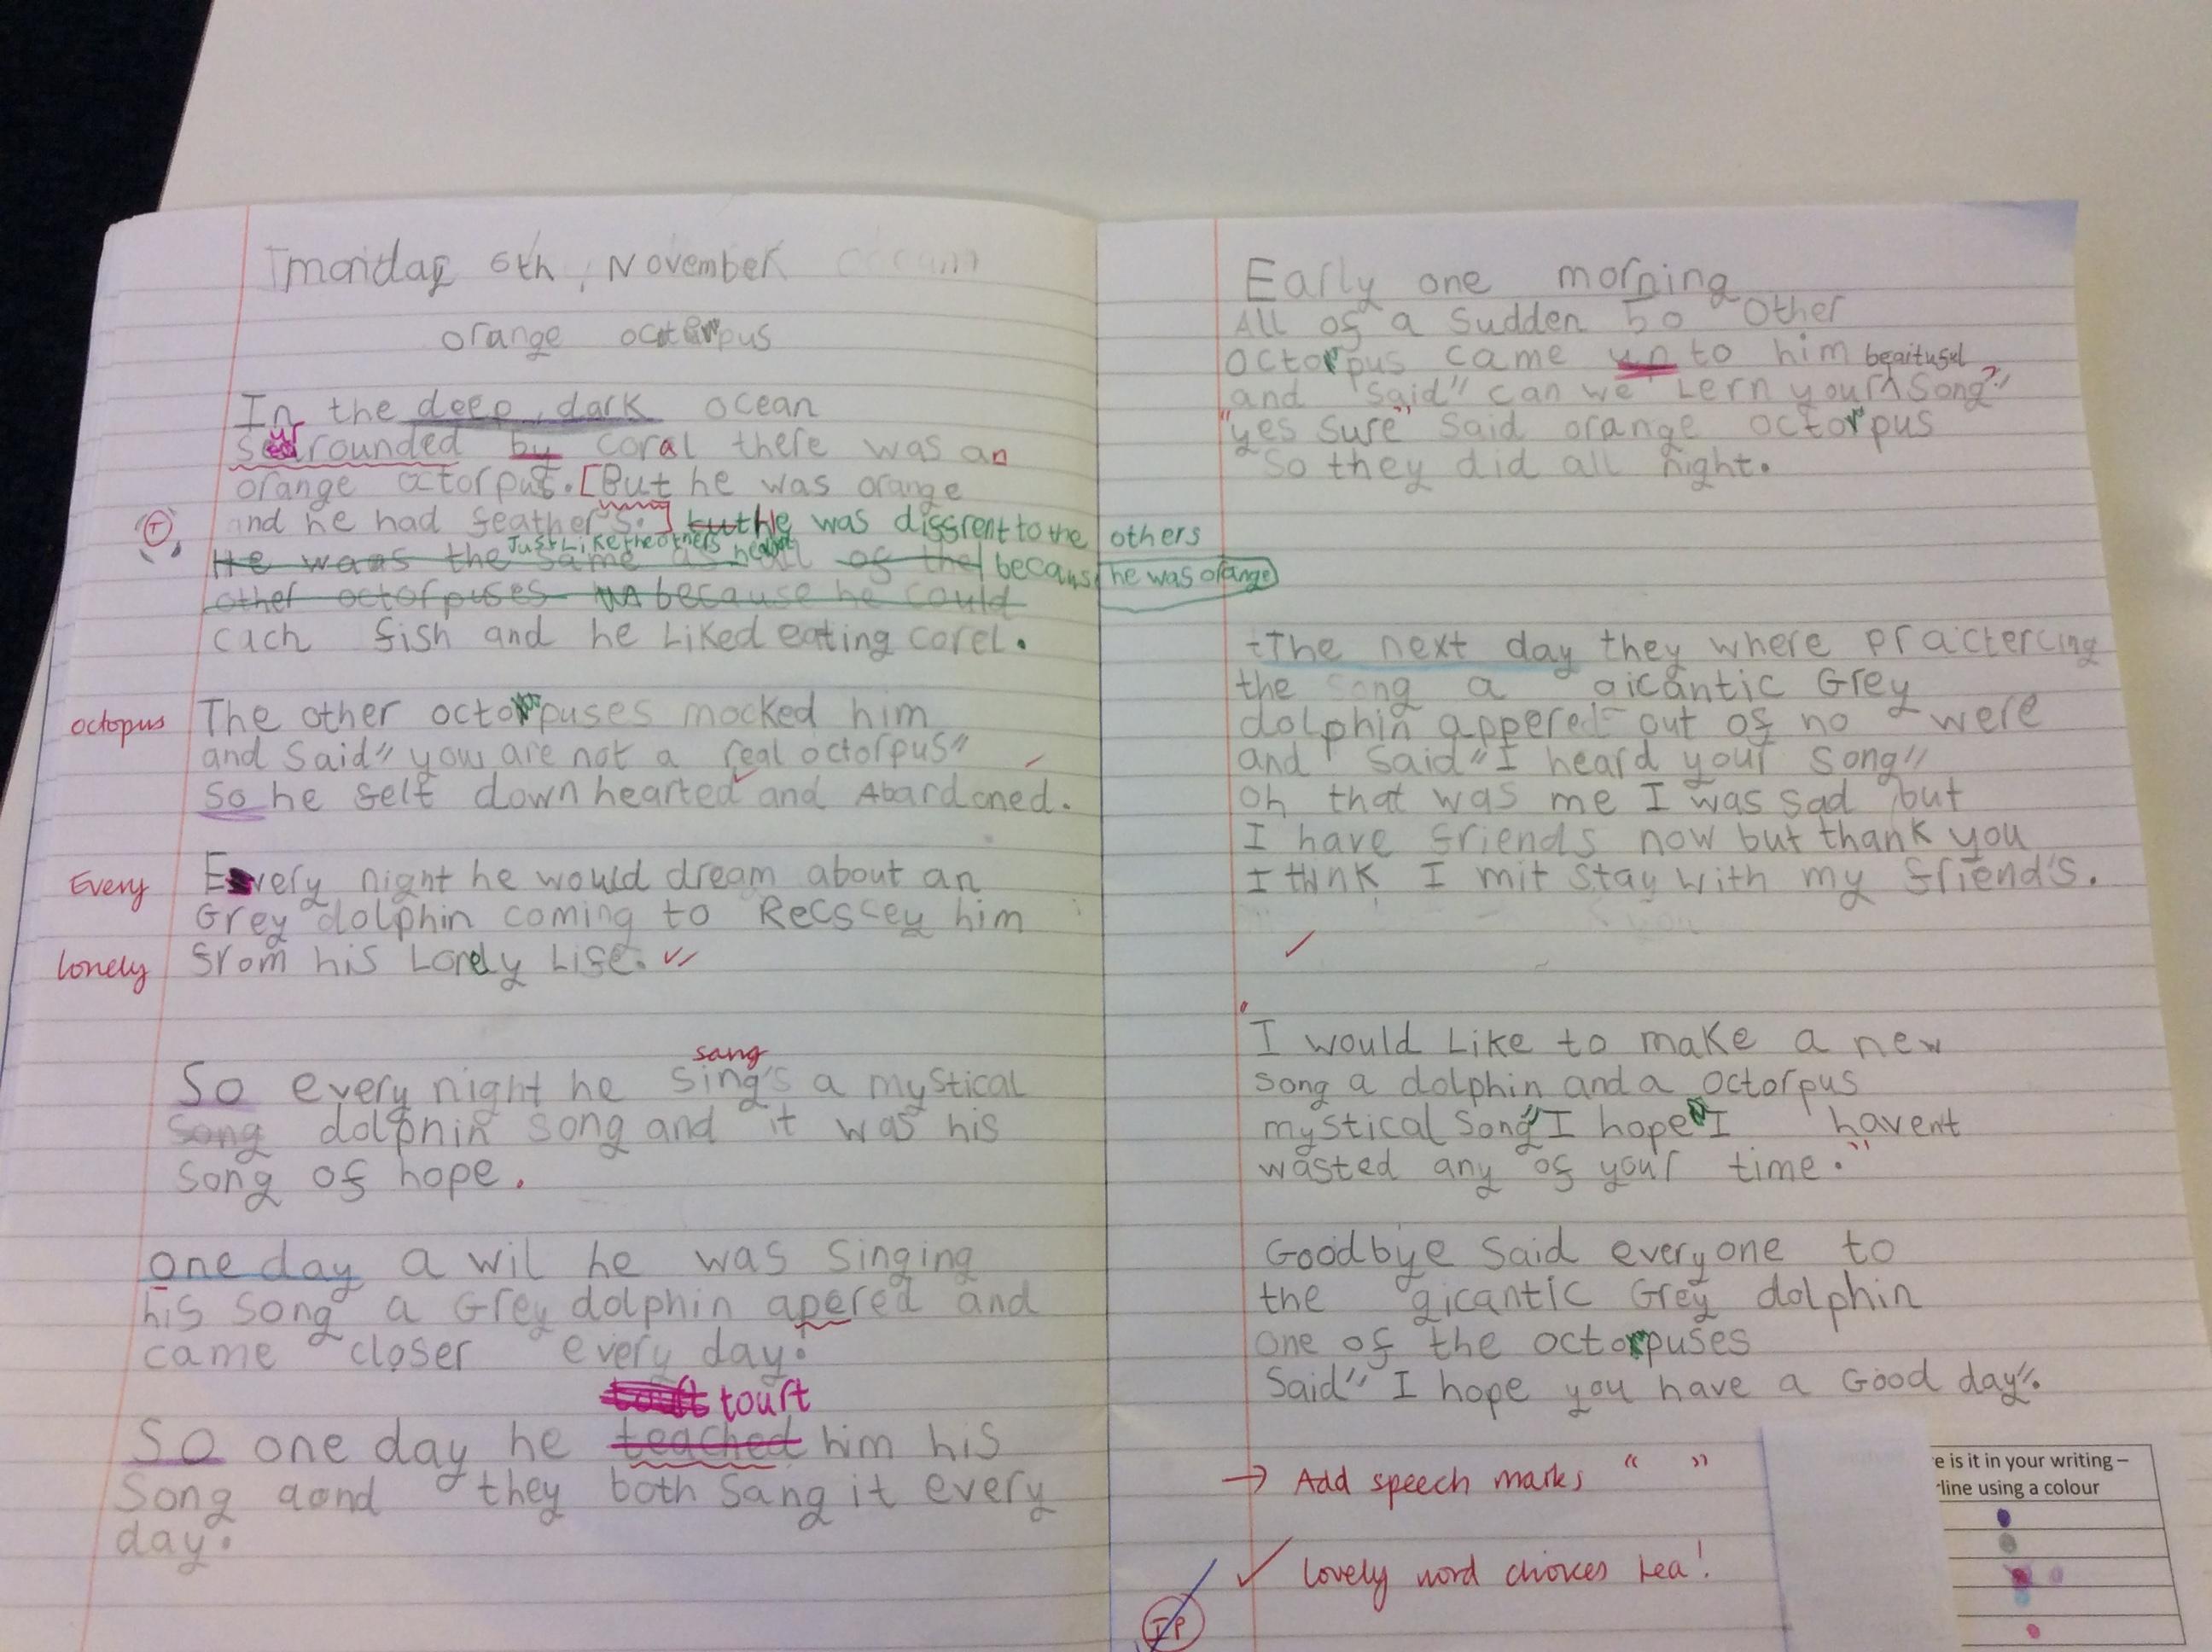 monday 6th, November
orange octorpus
In the deep, dark ocean
surrounded by coral there was an
orange octorpus. [But he was orange
and he had feather's.] but he was diffrent to the others
Just Like the others he
He waas the same as all of the because he was orange
other octorpuses because he could
cach fish and he Liked eating corel.
octopus
The other octorpuses mocked him
and said" you are not a real octorpus"
So he felt downhearted and Abardoned.
Every
Every night he would dream about an
Grey dolphin coming to Recscey him
lonely
from his Lonely Life.
sang
So every night he sing's a mystical
song dolphin song and it was his
song of hope.
one day a wil he was singing
his song a Grey dolphin apered and
came closer every day.
tourt
So one day he teached him his
Song aand they both Sang it every
day.
Early one morning
All of a sudden 50 other
octorpus came up to him
beaituful
and said" can we Lern your song?"
"yes sure" said orange octorpus
So they did all night.
The next day they where practercing
the song a gicantic Grey
dolphin appered out of no were
and said "I heard your song"
oh that was me I was sad but
I have friends now but thank you
I think I mit stay with my friend's.
I would Like to make a new
song a dolphin and a octorpus
mystical song" I hope I havent
wasted any of your time."
Goodbye said everyone to
the gicantic Grey dolphin
one of the octorpuses
said" I hope you have a Good day".
→ Add speech marks “ ”
✓ Lovely word choices Lea!
IP
e is it in your writing –
line using a colour